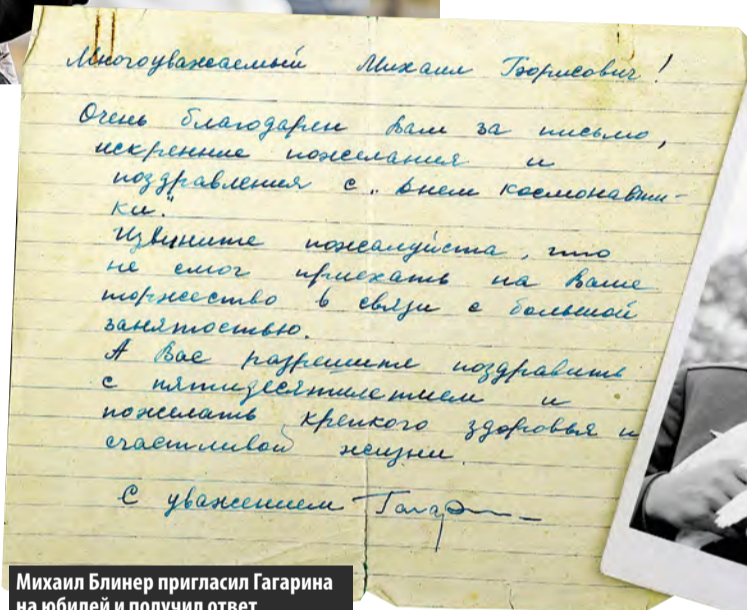 Многоуважаемый Михаил Борисович!
Очень благодарен Вам за письмо,
искренние пожелания и
поздравления с „Днем космонавти-
ки."
Извините пожалуйста, что
не смог приехать на Ваше
торжество в связи с большой
занятостью.
А Вас разрешите поздравить
с пятидесятилетием и
пожелать крепкого здоровья и
счастливой жизни.
С уважением Гагарин
Михаил Блинер пригласил Гагарина
на юбилей и получил ответ